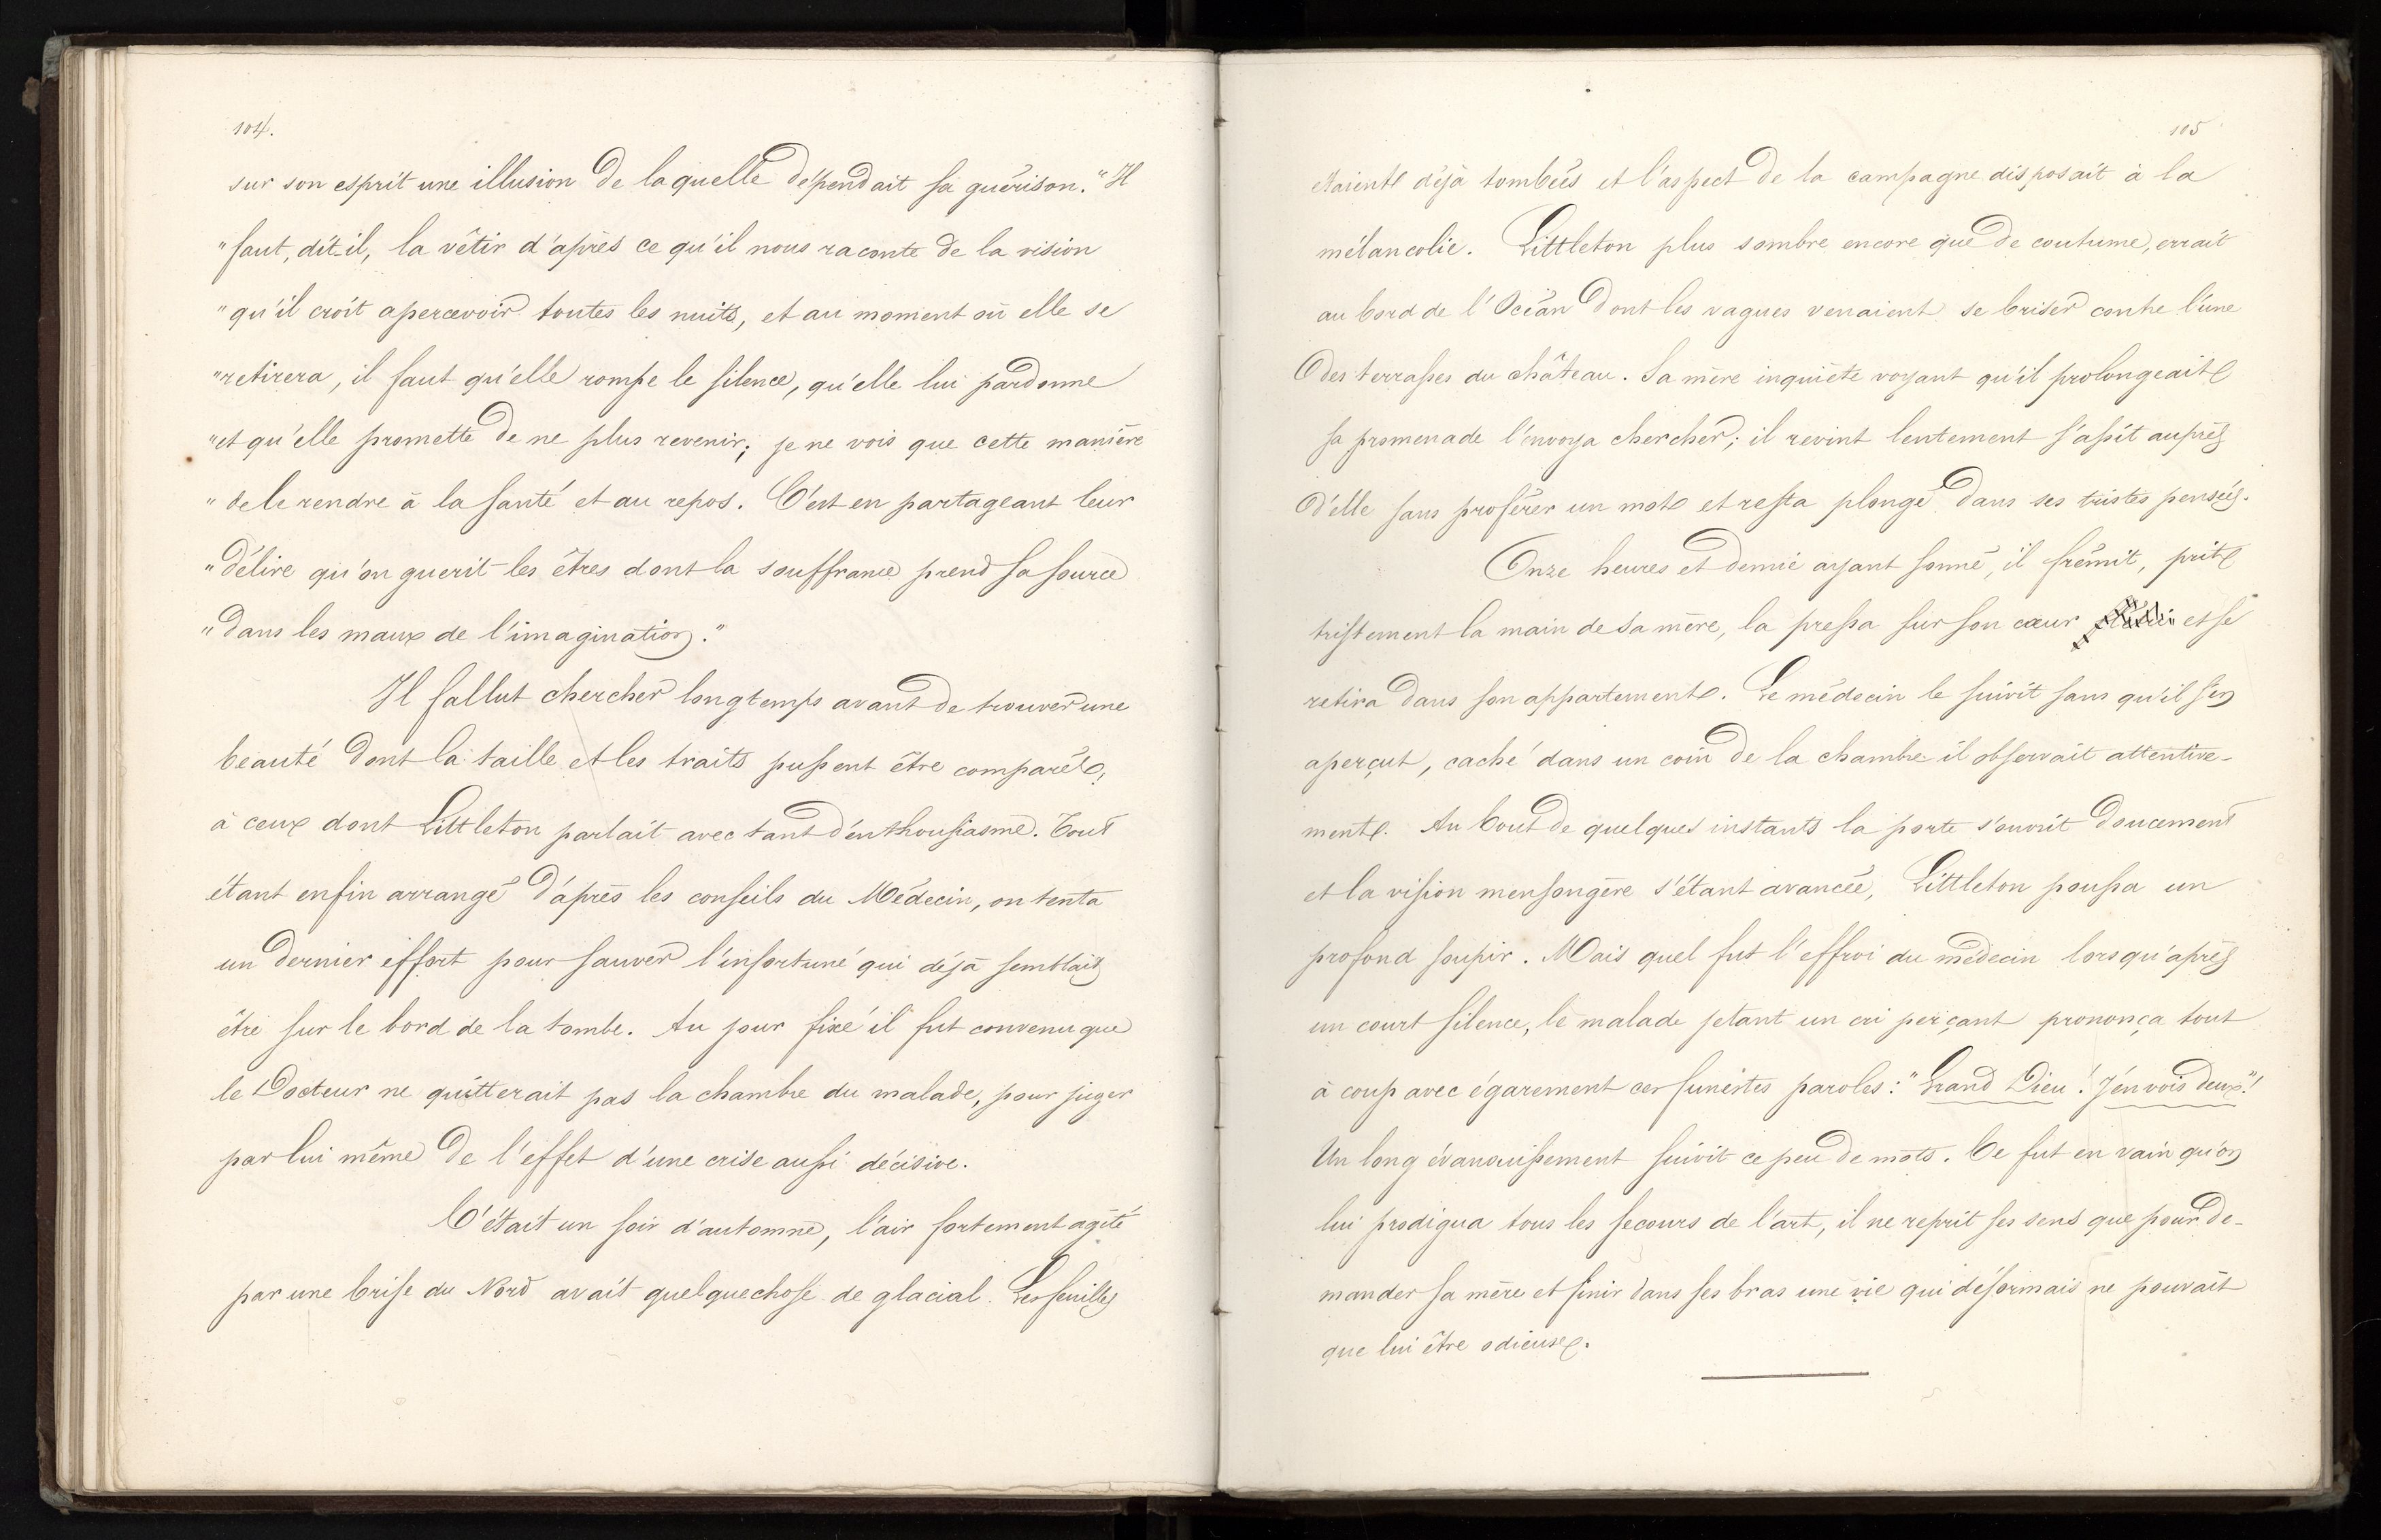 104.
sur son esprit une illusion de laquelle dépendait sa guérison. "Il
"faut, dit-il, la vêtir d'après ce qu'il nous raconte de la vision
"qu'il croit apercevoir toutes les nuits, et au moment où elle se
"retirera, il faut qu'elle rompe le silence, qu'elle lui pardonne
"et qu'elle promette de ne plus revenir; je ne vois que cette manière
"de le rendre à la santé et au repos. C'est en partageant leur
"délire qu'on guerit les êtres dont la souffrance prend sa source
"dans les maux de l'imagination."
Il fallut chercher longtemps avant de trouver une
beauté dont la taille et les traits pussent être comparés,
à ceux dont Littleton parlait avec tant d'enthousiasme. Tout
étant enfin arrangé d'après les conseils du Médecin, on tenta
un dernier effort pour sauver l'infortuné qui déjà semblait
être sur le bord de la tombe. Au jour fixé il fut convenu que
le Docteur ne quitterait pas la chambre du malade, pour juger
par lui même de l'effet d'une crise aussi décisive.
C'était un soir d'automne, l'air fortement agité
par une brise du Nord avait quelquechose de glacial. Les feuilles
105
étaient déjà tombées et l'aspect de la campagne disposait à la
mélancolie. Littleton plus sombre encore que de coutume, errait
au bord de l'Océan dont les vagues venaient se briser contre l'une
des terrasses du château. Sa mère inquiète voyant qu'il prolongeait
sa promenade l'envoya chercher; il revint lentement s'assit auprès
d'elle sans proférer un mot et resta plongé dans ses tristes pensées.
Onze heures et demie ayant sonné, il frémit, prit
tristement la main de sa mère, la pressa sur son cœur et se
retira dans son appartement. Le médecin le suivit sans qu'il s'en
aperçut, caché dans un coin de la chambre il observait attentive-
ment. Au bout de quelques instants la porte s'ouvrit doucement
et la vision mensongère s'étant avancée, Littleton poussa un
profond soupir. Mais quel fut l'effroi du médecin lorsqu'après
un court silence, le malade jetant un cri perçant prononça tout
à coup avec égarement ces funestes paroles: "Grand Dieu! J'en vois deux"!
Un long évanouissement suivit ce peu de mots. Ce fut en vain qu'on
lui prodigua tous les secours de l'art, il ne reprit ses sens que pour de-
mander sa mère et finir dans ses bras une vie qui désormais ne pouvait
que lui être odieuse.